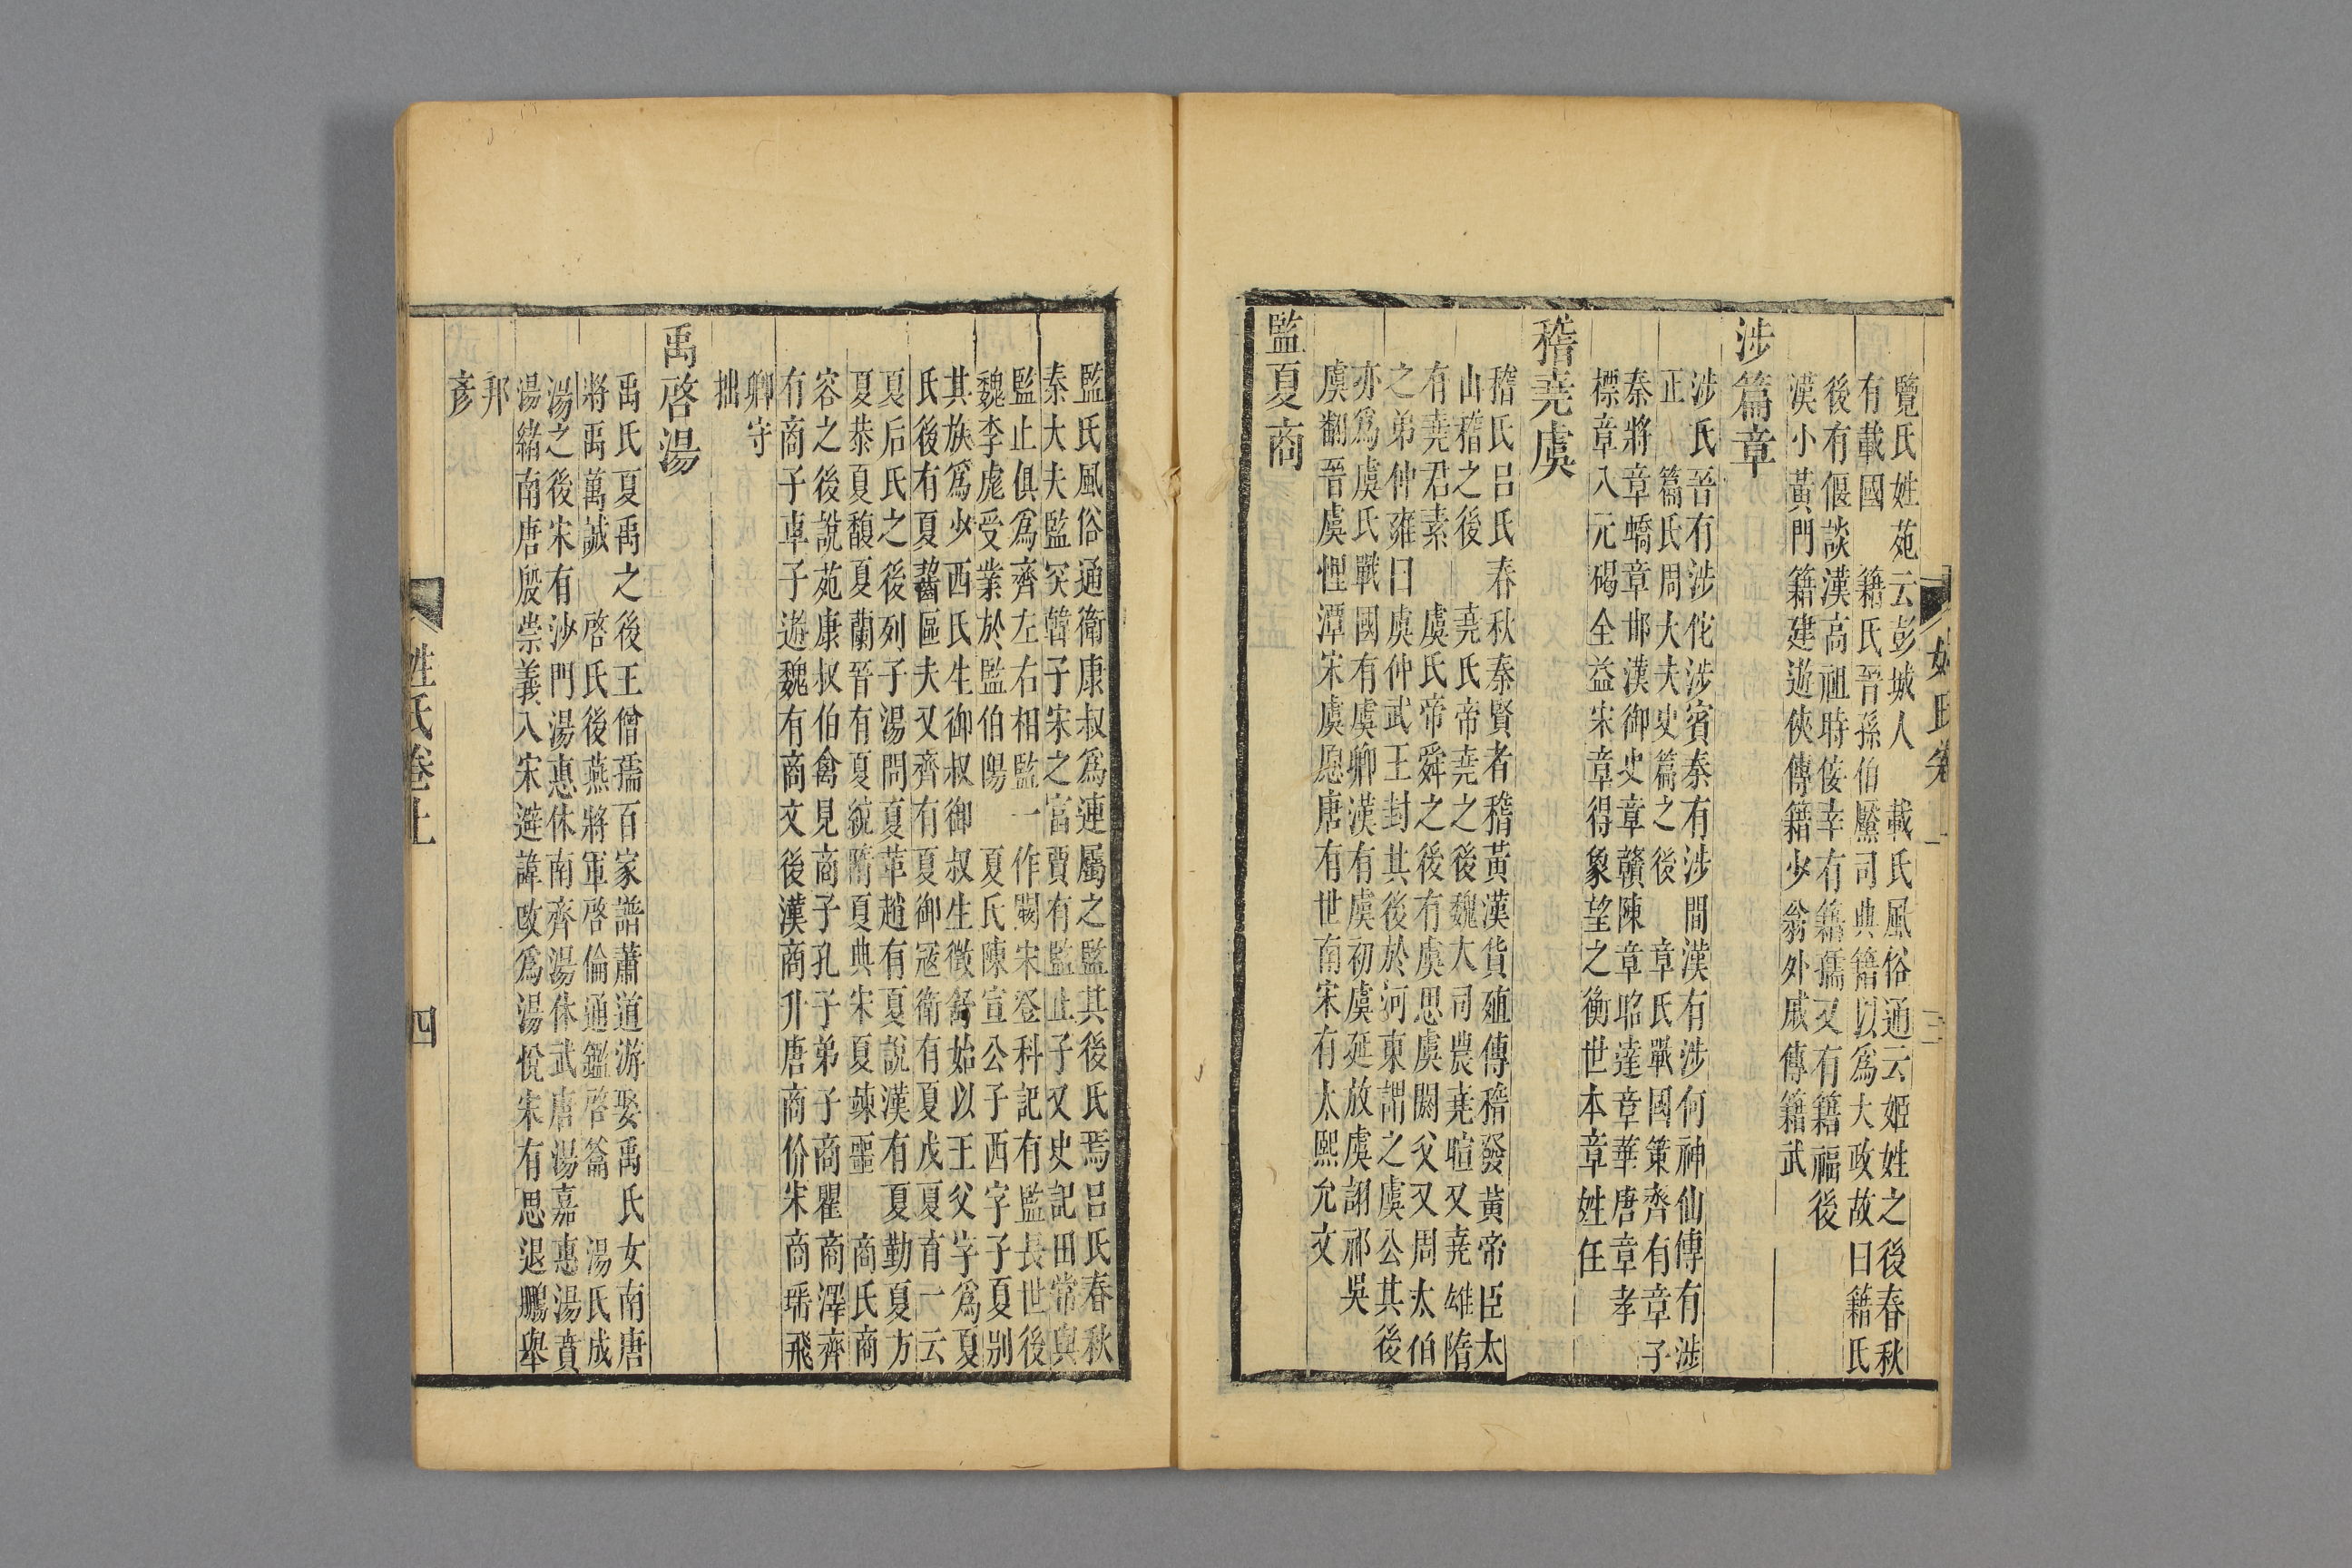 姓氏卷上
三
覽氏姓苑云彭城人 載氏風俗通云姬姓之後春秋
有載國 籍氏晉孫伯黶司典籍以為大政故曰籍氏
後有偃談漢高祖時佞幸有籍孺又有籍福後
漢小黃門籍建遊俠傳籍少翁外戚傳籍武
涉篇章
涉氏晉有涉佗涉賓秦有涉間漢有涉何神仙傳有涉
正 篇氏周大夫史篇之後 章氏戰國策齊有章子
秦將章蟜章邯漢御史章贛陳章昭達章華唐章孝
標章八元碣全益宋章得象望之衡世本章姓任
稽堯虞
稽氏呂氏春秋秦賢者稽黃漢貨殖傳稽發黃帝臣太
山稽之後 堯氏帝堯之後魏大司農堯暄又堯雄隋
有堯君素 虞氏帝舜之後有虞思虞閼父又周太伯
之弟仲雍曰虞仲武王封其後於河東謂之虞公其後
亦為虞氏戰國有虞卿漢有虞初虞延放虞詡祁吳
虞翻晉虞悝潭宋虞愿唐有世南宋有太熙允文
監夏商
監氏風俗通衛康叔為連屬之監其後氏焉呂氏春秋
秦大夫監突韓子宋之富賈有監止子又史記田常與
監止俱為齊左右相監一作闞宋登科記有監長世後
魏李彪受業於監伯陽 夏氏陳宣公子西字子夏別
其族為少西氏生御叔御叔生徵舒始以王父字為夏
氏後有夏齧區夫又齊有夏御寇衛有夏戊夏育一云
夏后氏之後列子湯問夏革趙有夏說漢有夏勤夏方
夏恭夏馥夏蘭晉有夏統隋夏典宋夏竦噩 商氏商
容之後說苑康叔伯禽見商子孔子弟子商瞿商澤齊
有商子車子遊魏有商文後漢商升唐商价宋商瑤飛
卿守
拙
禹啓湯
禹氏夏禹之後王僧孺百家譜蕭道游娶禹氏女南唐
將禹萬誠 啓氏後燕將軍啓倫通鑑啓籥 湯氏成
湯之後宋有沙門湯惠休南齊湯休武唐湯嘉惠湯賁
湯緒南唐殷崇義入宋避諱改為湯悅宋有思退鵬舉
邦
彥
姓氏卷上
四